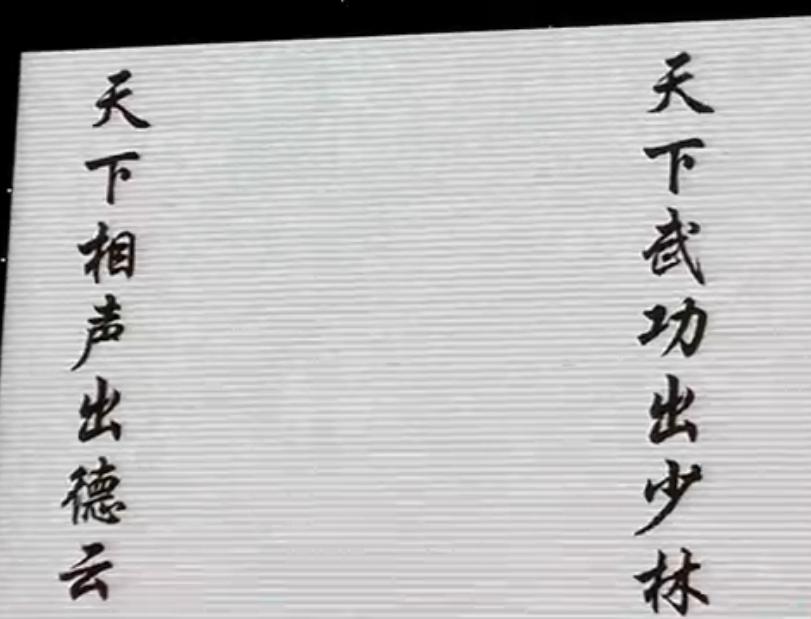 天下武功出少林
天下相声出德云